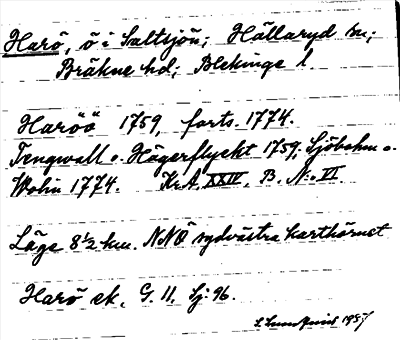 Harö, ö i Saltsjön; Hällaryd sn;
Bräkne hd; Blekinge l.
Haröö 1759, forts. 1774.
Tengwall o. Högerflyckt 1759; Sjöbohm o.
Wohin 1774. Kr.A. XXIV. B. No VI.
Läge 8 1/2 km. NNÖ sydvästra karthörnet
Harö ek. G. 11. Sj: 96.
1957